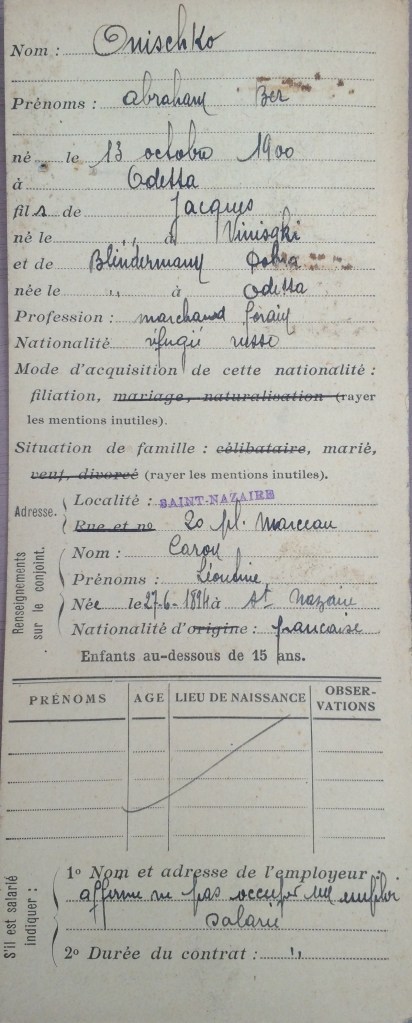 Nom : Onischko
Prénoms : Abraham Ber
né le 13 octobre 1900
à Odessa
fils de Jacques
né le ,, à Vinispki
et de Blindermann Dobra
née le ,, à Odessa
Profession : marchand forain
Nationalité réfugié russe
Mode d'acquisition de cette nationalité :
filiation, mariage, naturalisation (rayer
les mentions inutiles).
Situation de famille : célibataire, marié,
veuf, divorcé (rayer les mentions inutiles).
Adresse.
Localité : SAINT-NAZAIRE
Rue et no 20 pl. Marceau
Renseignements
sur le conjoint.
Nom : Caron
Prénoms : Léontine
Née le 27-6-1894 à St Nazaire
Nationalité d'origine : française
Enfants au-dessous de 15 ans.
PRÉNOMS AGE LIEU DE NAISSANCE OBSER-
VATIONS
S'il est salarié
indiquer :
1o Nom et adresse de l'employeur :
affirme ne pas occuper un emploi
salarié
2o Durée du contrat : ,,